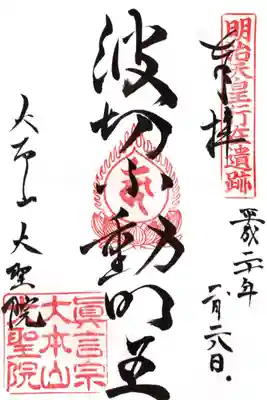 明治天皇行在遺跡
奉拝
平成二十年
月二六日
波切不動明王
大本山 大聖院
眞言宗
大本山
大聖院